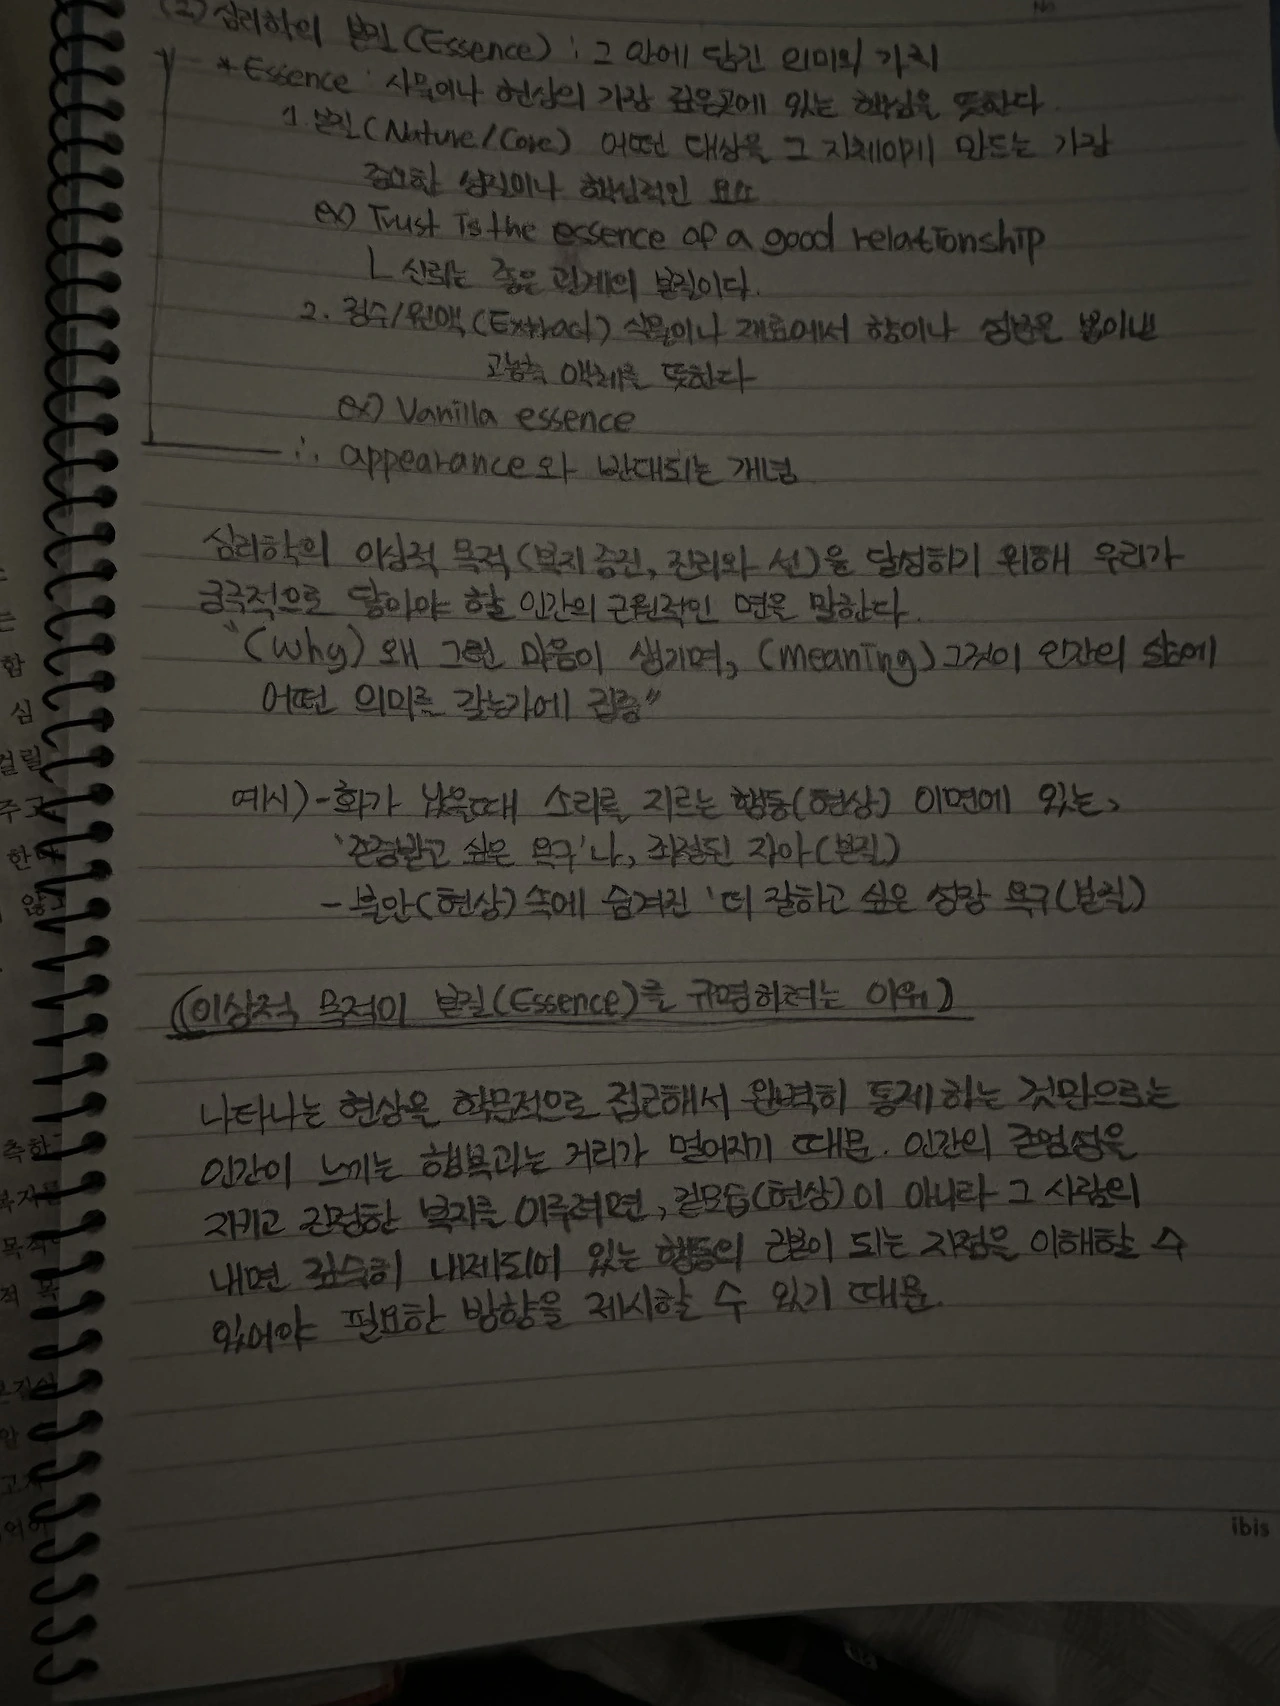 (2) 심리학의 본질(Essence) : 그 안에 담긴 의미와 가치
*Essence : 사물이나 현상의 가장 깊은곳에 있는 핵심을 뜻한다.
1. 본질(Nature/Core) 어떤 대상을 그 자체이게 만드는 가장
중요한 성질이나 핵심적인 요소
ex) Trust is the essence of a good relationship
ㄴ 신뢰는 좋은 관계의 본질이다.
2. 정수/원액(Extract) 식물이나 재료에서 향이나 성분을 뽑아낸
고농축 액체를 뜻한다
ex) Vanilla essence
∴ appearance와 반대되는 개념
심리학의 이상적 목적(복지 증진, 진리와 선)을 달성하기 위해 우리가
궁극적으로 닿아야 할 인간의 근원적인 면을 말한다.
"(Why) 왜 그런 마음이 생기며, (meaning) 그것이 인간의 삶에
어떤 의미를 갖는가에 집중"
예시) - 화가 났을때 소리를 지르는 행동(현상) 이면에 있는,
'존중받고 싶은 욕구'나, 좌절된 자아(본질)
- 불안(현상) 속에 숨겨진 '더 잘하고 싶은 성장 욕구(본질)
(이상적 목적이 본질(Essence)를 규명하려는 이유)
나타나는 현상을 학문적으로 접근해서 완벽히 통제하는 것만으로는
인간이 느끼는 행복과는 거리가 멀어지기 때문. 인간의 존엄성을
지키고 진정한 복지를 이루려면, 겉모습(현상)이 아니라 그 사람의
내면 깊숙히 내제되어 있는 행동의 근본이 되는 지점을 이해할 수
있어야 필요한 방향을 제시할 수 있기 때문.
ibis